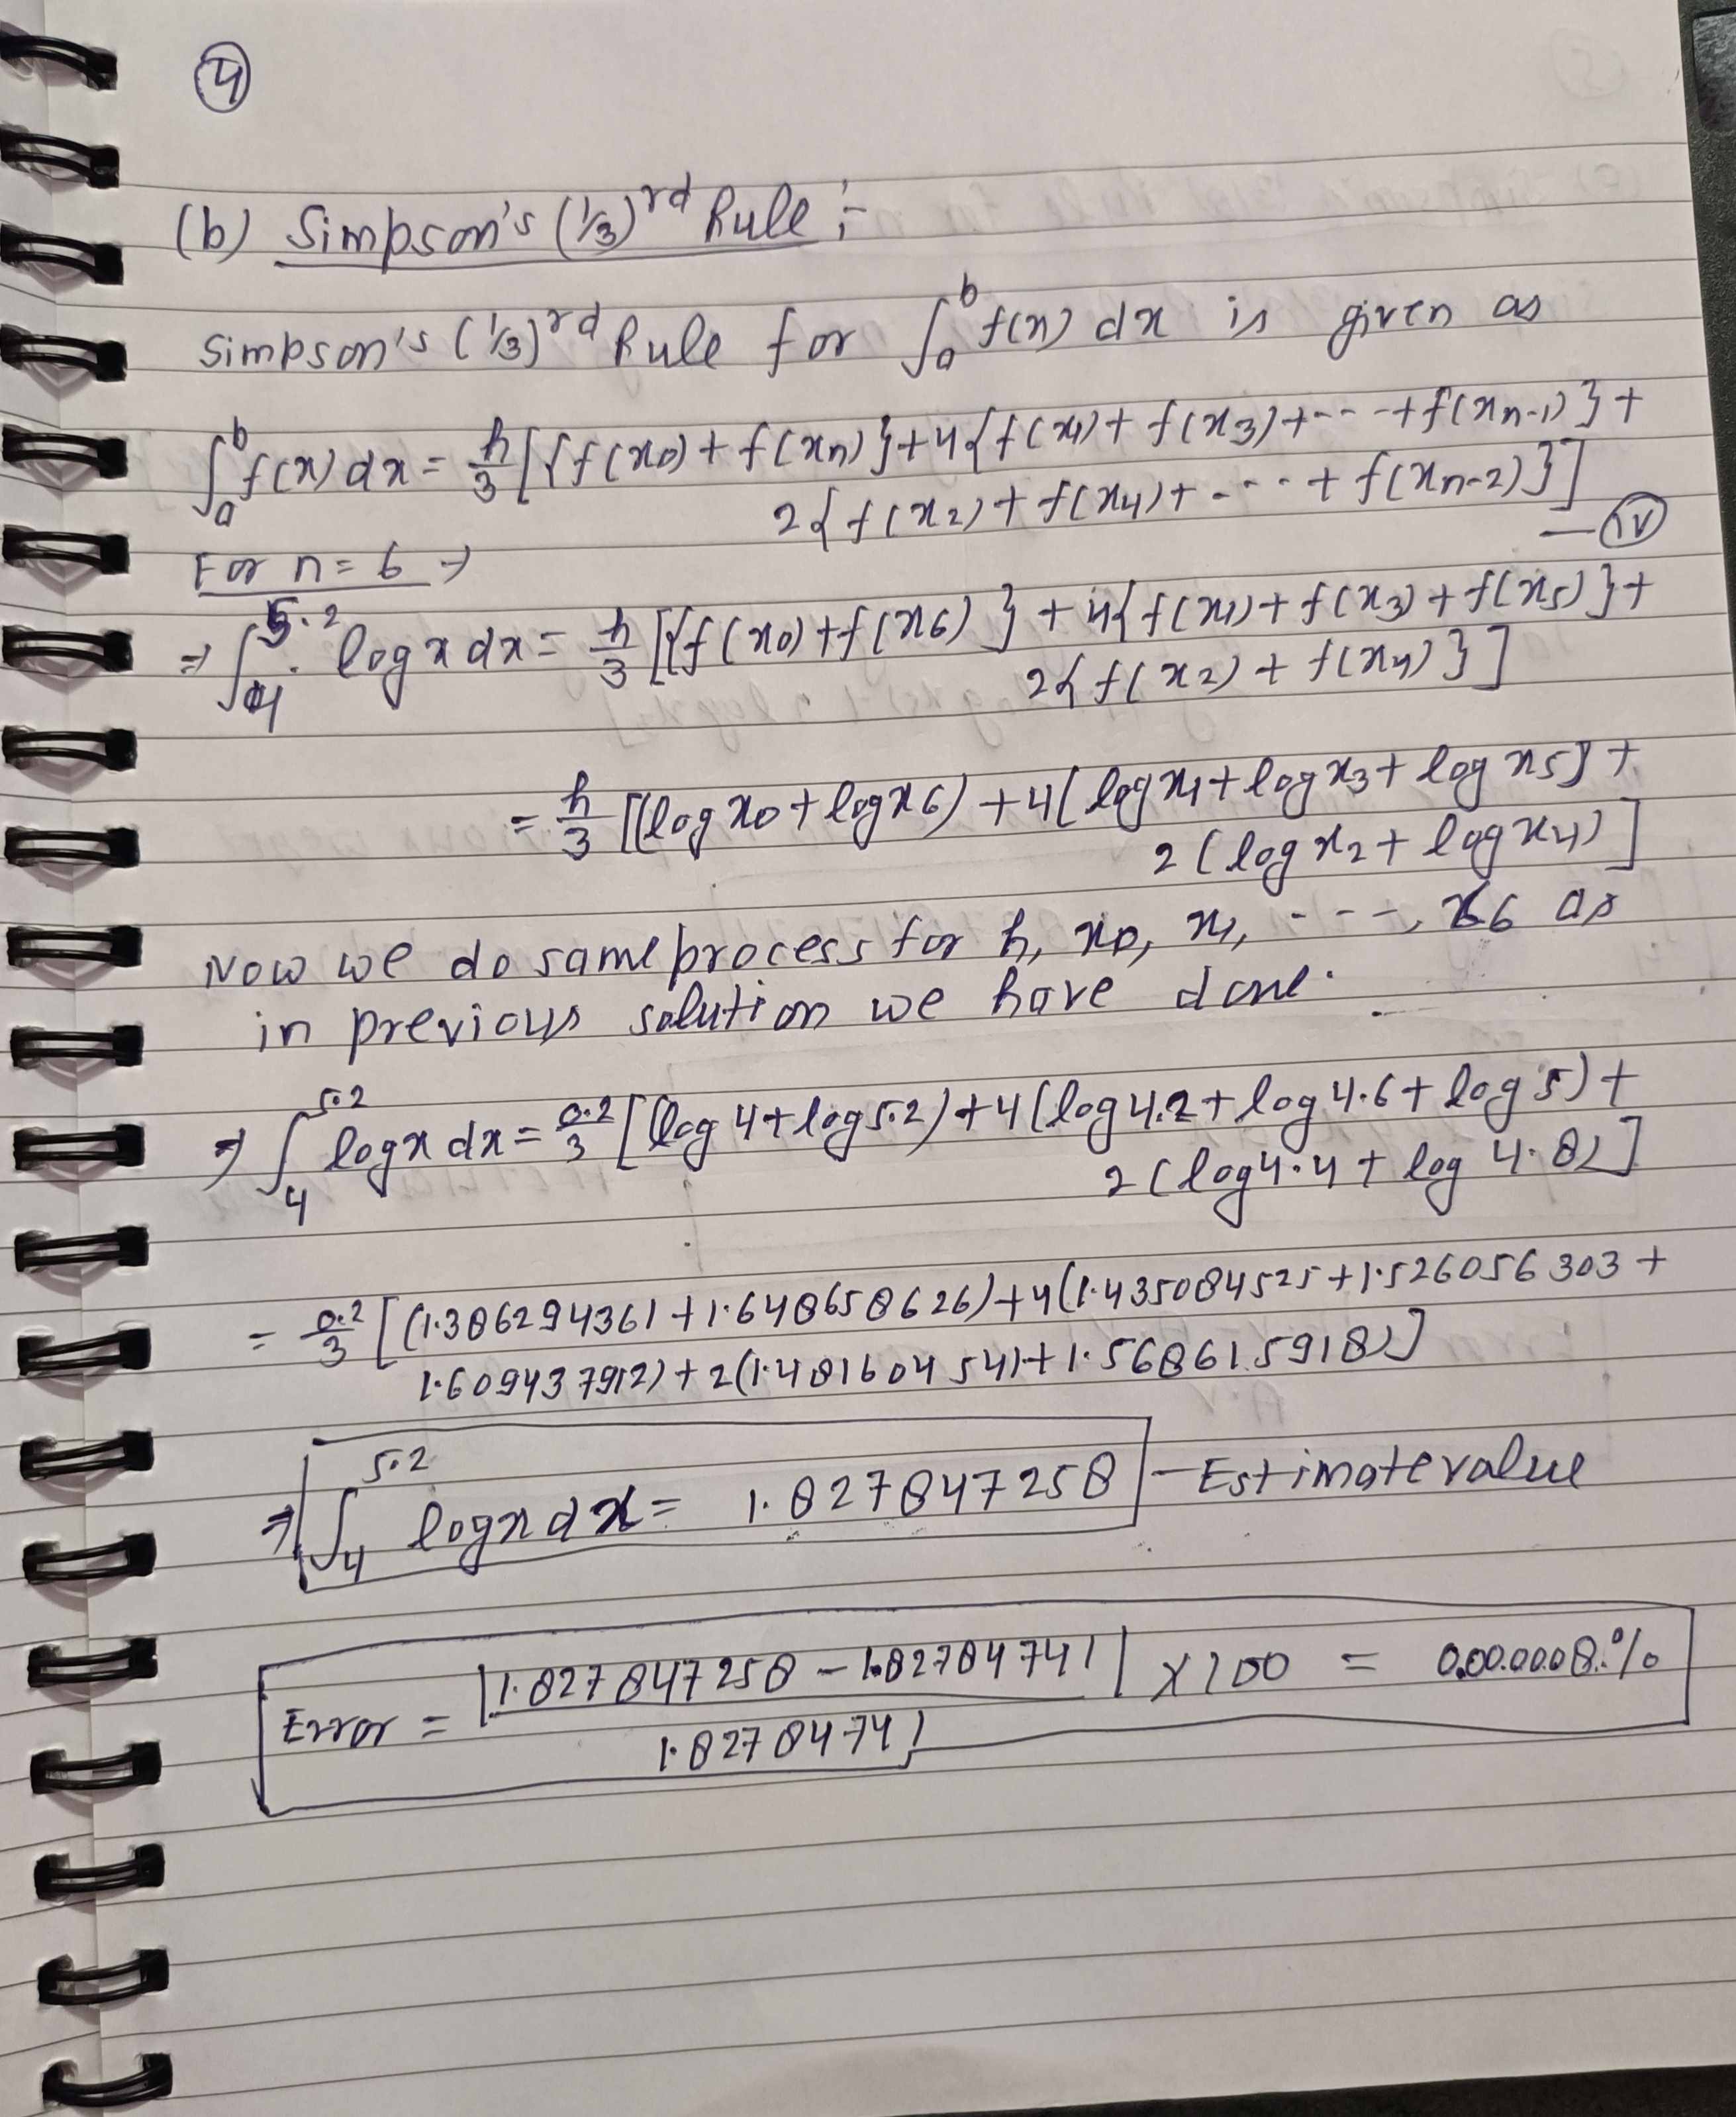 ④
(b) Simpson's (1/3)rd Rule :-
Simpson's (1/3)rd Rule for ∫_a^b f(x) dx is given as
∫_a^b f(x) dx = h/3 [{f(x0) + f(xn)} + 4{f(x1) + f(x3) + --- + f(xn-1)} +
2{f(x2) + f(x4) + ---- + f(xn-2)}]
— (iv)
For n = 6 →
⇒ ∫_4^5.2 log x dx = h/3 [{f(x0) + f(x6)} + 4{f(x1) + f(x3) + f(x5)} +
2{f(x2) + f(x4)}]
= h/3 [(log x0 + log x6) + 4( log x1 + log x3 + log x5) +
2 (log x2 + log x4)]
Now we do same process for h, x0, x1, ---, x6 as
in previous solution we have done.
⇒ ∫_4^5.2 log x dx = 0.2/3 [(log 4 + log 5.2) + 4 (log 4.2 + log 4.6 + log 5) +
2 (log 4.4 + log 4.8)]
= 0.2/3 [(1.386294361 + 1.648658626) + 4(1.435084525 + 1.526056303 +
1.609437912) + 2(1.481604541 + 1.568615918)]
⇒ ∫_4^5.2 log x dx = 1.827847258 — Estimate value
Error = |1.827847258 - 1.82784741| × 100 = 0.000008 %
1.82784741